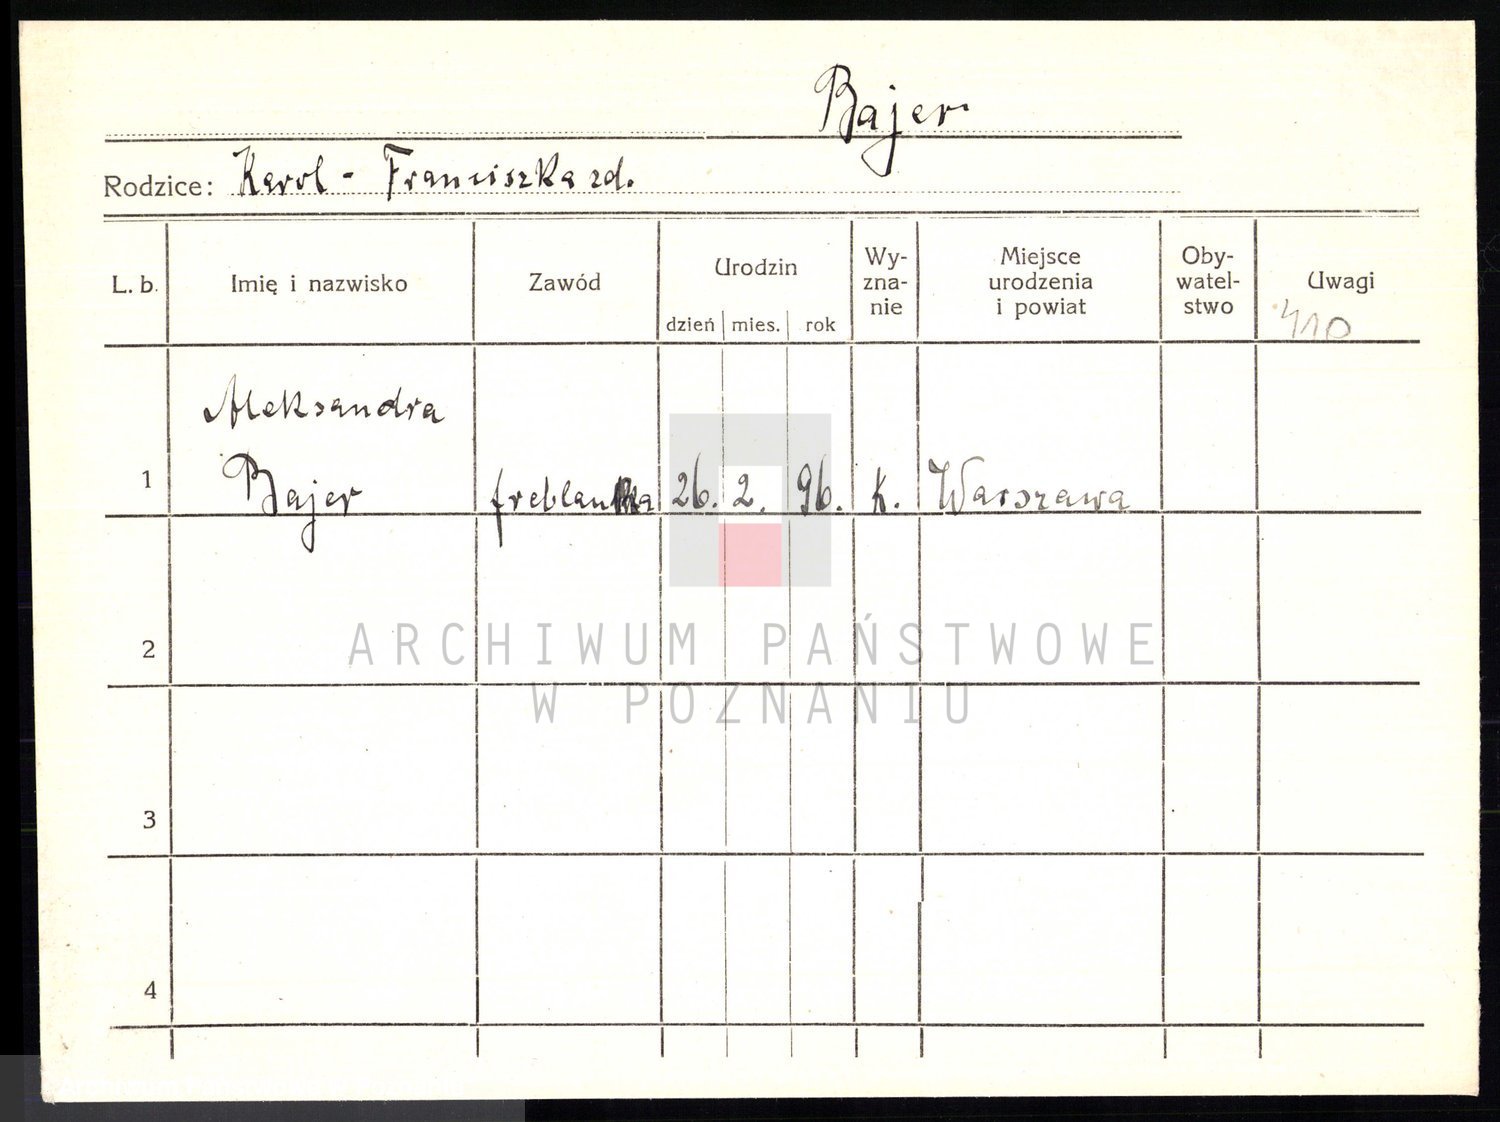 Bajer
Rodzice: Karol - Franciszka zd.
L. b. Imię i nazwisko Zawód Urodzin Wy-zna-nie Miejsce urodzenia i powiat Oby-watel-stwo Uwagi
dzień mies. rok
410
Aleksandra
1 Bajer freblanka 26. 2. 96. K. Warszawa
2
ARCHIWUM PAŃSTWOWE
W POZNANIU
3
4